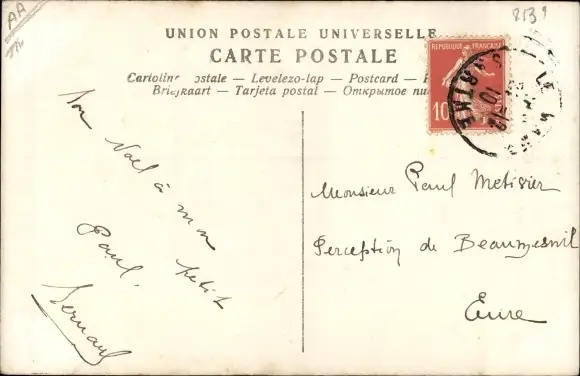 AA
8139
UNION POSTALE UNIVERSELLE
CARTE POSTALE
Cartolin postale — Levelezo-lap — Postcard —
Briefkaart — Tarjeta postal — Открытое пи
REPUBLIQUE FRANÇAISE
10
LE MANS
SARTHE
Bon Noel à mon petit
Paul.
Monsieur Paul Metivier
Perception de Beaumesnil
Eure